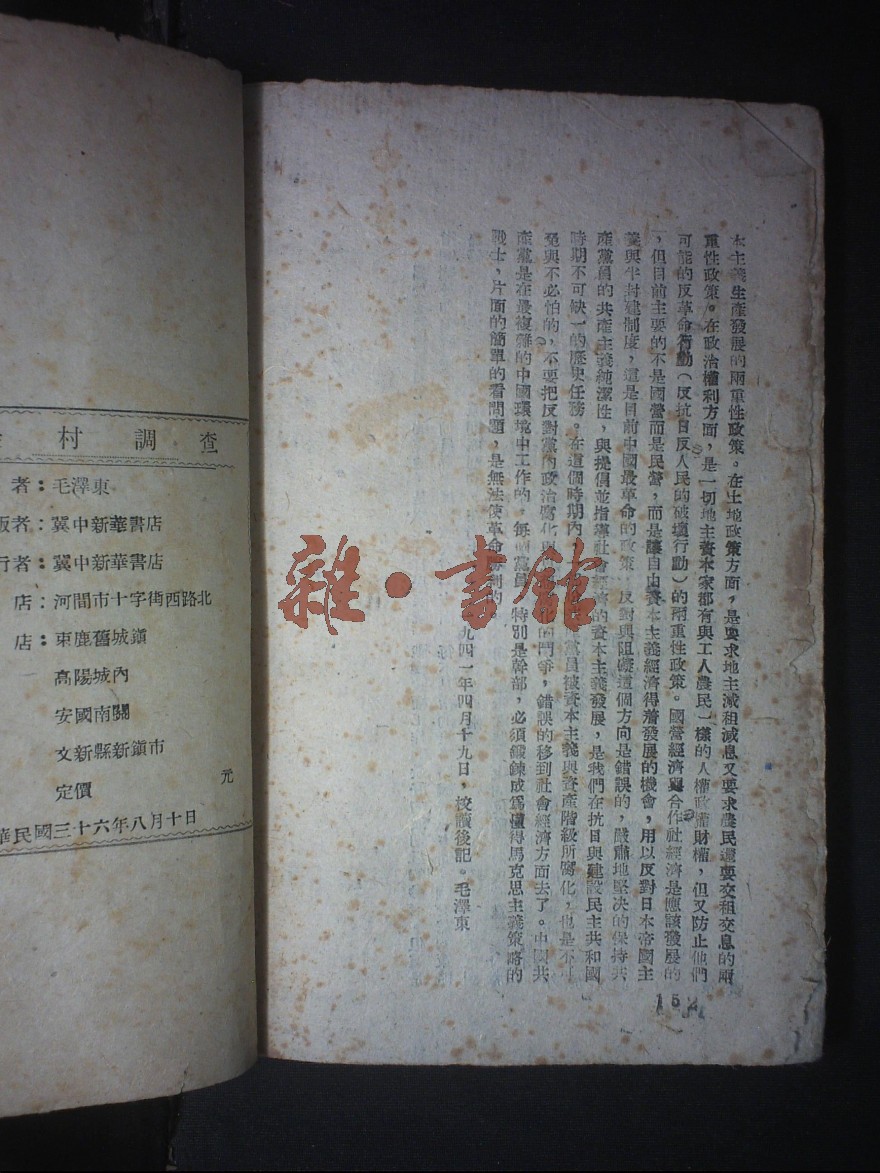 本主義生產發展的兩重性政策。在土地政策方面,是要求地主減租減息又要求農民還要交租交息的兩
重性政策。在政治權利方面,是一切地主資本家都有與工人農民一樣的人權政權財權,但又防止他們
可能的反革命行動(反抗日反人民的破壞行動)的兩重性政策。國營經濟與合作社經濟是應該發展的
,但目前主要的不是國營而是民營,而是讓自由資本主義經濟得着發展的機會,用以反對日本帝國主
義與半封建制度,這是目前中國最革命的政策,反對與阻礙這個方向是錯誤的,嚴肅地堅决的保持共
產黨員的共產主義純潔性,與提倡並指導社會經濟的資本主義發展,是我們在抗日與建設民主共和國
時期不可缺一的歷史任務。在這個時期內 黨員被資本主義與資產階級所腐化,也是不可
免與不必怕的,不要把反對黨內政治腐化與 的鬥爭,錯誤的移到社會經濟方面去了。中國共
產黨是在最複雜的中國環境中工作的,每個黨員 特別是幹部,必須鍛鍊成爲懂得馬克思主義策略的
戰士,片面的簡單的看問題,是無法使革命勝利的。
九四一年四月十九日,校讀後記。毛澤東
152
村調查
者:毛澤東
版者:冀中新華書店
行者:冀中新華書店
店:河間市十字街西路北
店:束鹿舊城鎮
高陽城內
安國南關
文新縣新鎮市
定價 元
華民國三十六年八月十日
雜·書館